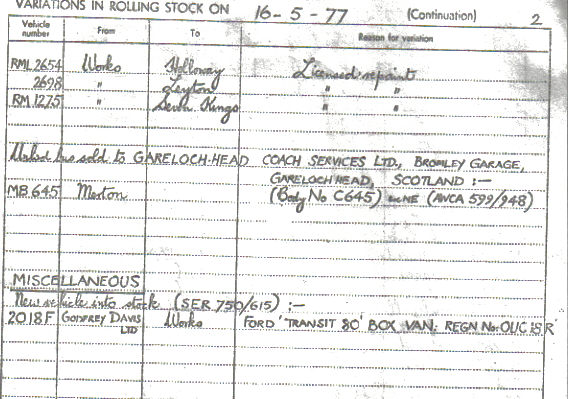 VARIATIONS IN ROLLING STOCK ON 16-5-77 (Continuation) 2
Vehicle number From To Reason for variation
RML 2654 Works Holloway Licensed repaint
2698 " Leyton " "
RM 1275 " Seven Kings " "
bus sold to GARELOCH-HEAD COACH SERVICES LTD., BROMLEY GARAGE,
GARELOCHHEAD, SCOTLAND :-
MB 645 Merton (Body No C645) (AWCA 599/948)
MISCELLANEOUS
New vehicle into stock (SER 750/615) :-
2018F GODFREY DAVIS LTD Works FORD 'TRANSIT 80' BOX VAN. REGN No: OUC